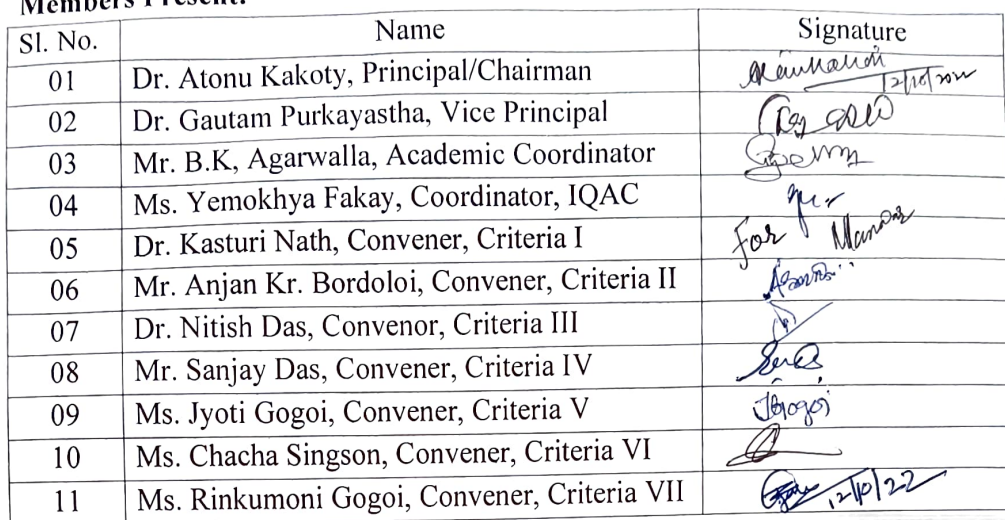 Members Present:
Sl. No. Name Signature
01 Dr. Atonu Kakoty, Principal/Chairman 12/10/2022
02 Dr. Gautam Purkayastha, Vice Principal
03 Mr. B.K, Agarwalla, Academic Coordinator
04 Ms. Yemokhya Fakay, Coordinator, IQAC
05 Dr. Kasturi Nath, Convener, Criteria I For
06 Mr. Anjan Kr. Bordoloi, Convener, Criteria II
07 Dr. Nitish Das, Convenor, Criteria III
08 Mr. Sanjay Das, Convener, Criteria IV
09 Ms. Jyoti Gogoi, Convener, Criteria V JGogoi
10 Ms. Chacha Singson, Convener, Criteria VI
11 Ms. Rinkumoni Gogoi, Convener, Criteria VII 12/10/22